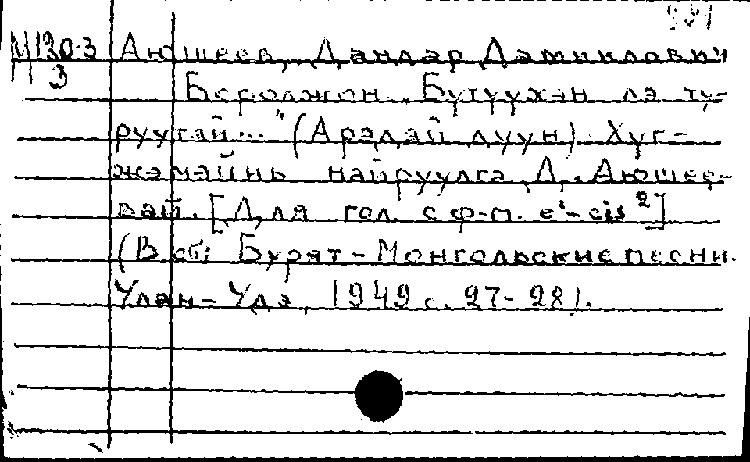 М130-3 Аюшеев, Дандар Дампилович
3 Боролжон. "Бутуухэн лэ ту-
руутэй..." (Арадай дуун). Хүг-
жэмэйнь найруулга Д. Аюшее-
вэй. [Для гол. с ф-п. e¹-cis²]
(В сб: Бурят-Монгольские песни.
Улан-Удэ, 1949 с. 27-28).